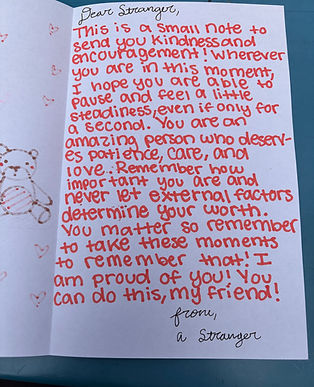 Dear Stranger,
This is a small note to
send you kindness and
encouragement! Wherever
you are in this moment,
I hope you are able to
pause and feel a little
steadiness, even if only for
a second. You are an
amazing person who deserv-
es patience, care, and
love. Remember how
important you are and
never let external factors
determine your worth.
You matter so remember
to take these moments
to remember that! I
am proud of you! You
can do this, my friend!
from,
a Stranger